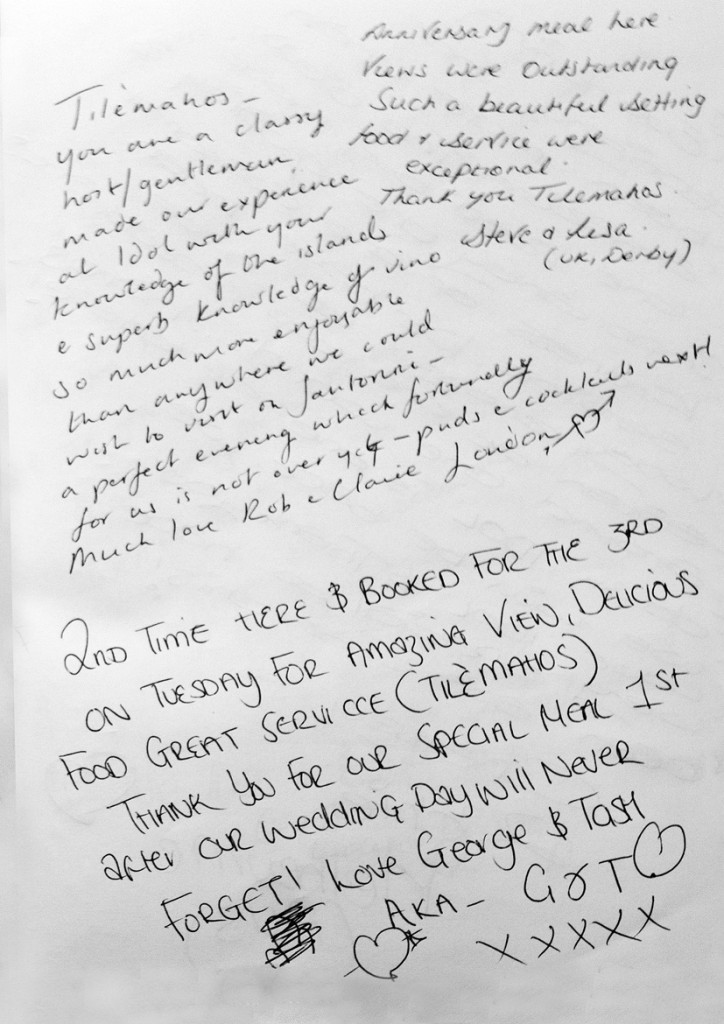 Anniversary meal here
Views were Outstanding
Such a beautiful setting
food & service were
exceptional.
Thank you Tilemahos.
Steve & Lisa.
(UK, Derby)
Tilèmahos -
you are a classy
host/gentleman
made our experience
at Idol with your
knowledge of the islands
e superb knowledge of vino
so much more enjoyable
than anywhere we could
wish to visit on Santorini -
a perfect evening which fortunately
for us is not over yet - puds e cocktails next!
Much love Rob e Claire London
2ND TIME HERE & BOOKED FOR THE 3RD
ON TUESDAY FOR AMAZING VIEW, DELICIOUS
FOOD GREAT SERVICCE (TILÈMAHOS)
THANK YOU FOR OUR SPECIAL MEAL 1ST
after OUR WEDDING DAY Will NEVER
FORGET! Love George & TASH
AKA - G & T
XXXXX